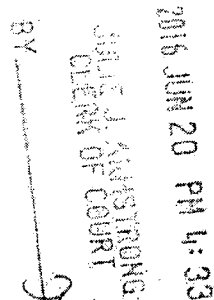 2016 JUN 20 PM 4:33
ARMSTRONG
CLERK OF COURT
BY